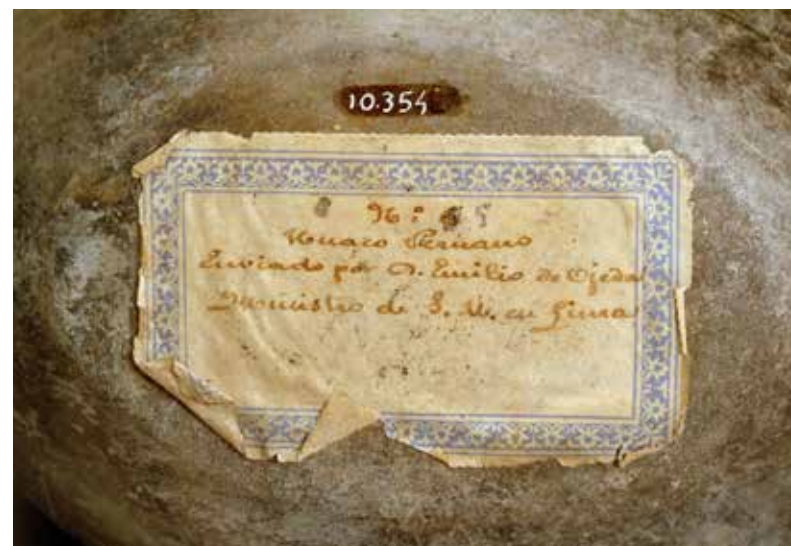 10.354
Nº 65
Huaco Peruano
Enviado por D. Emilio de Ojeda
Ministro de S. M. en Lima